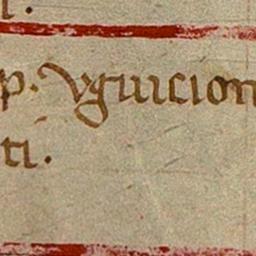 p. vguicion
ti.